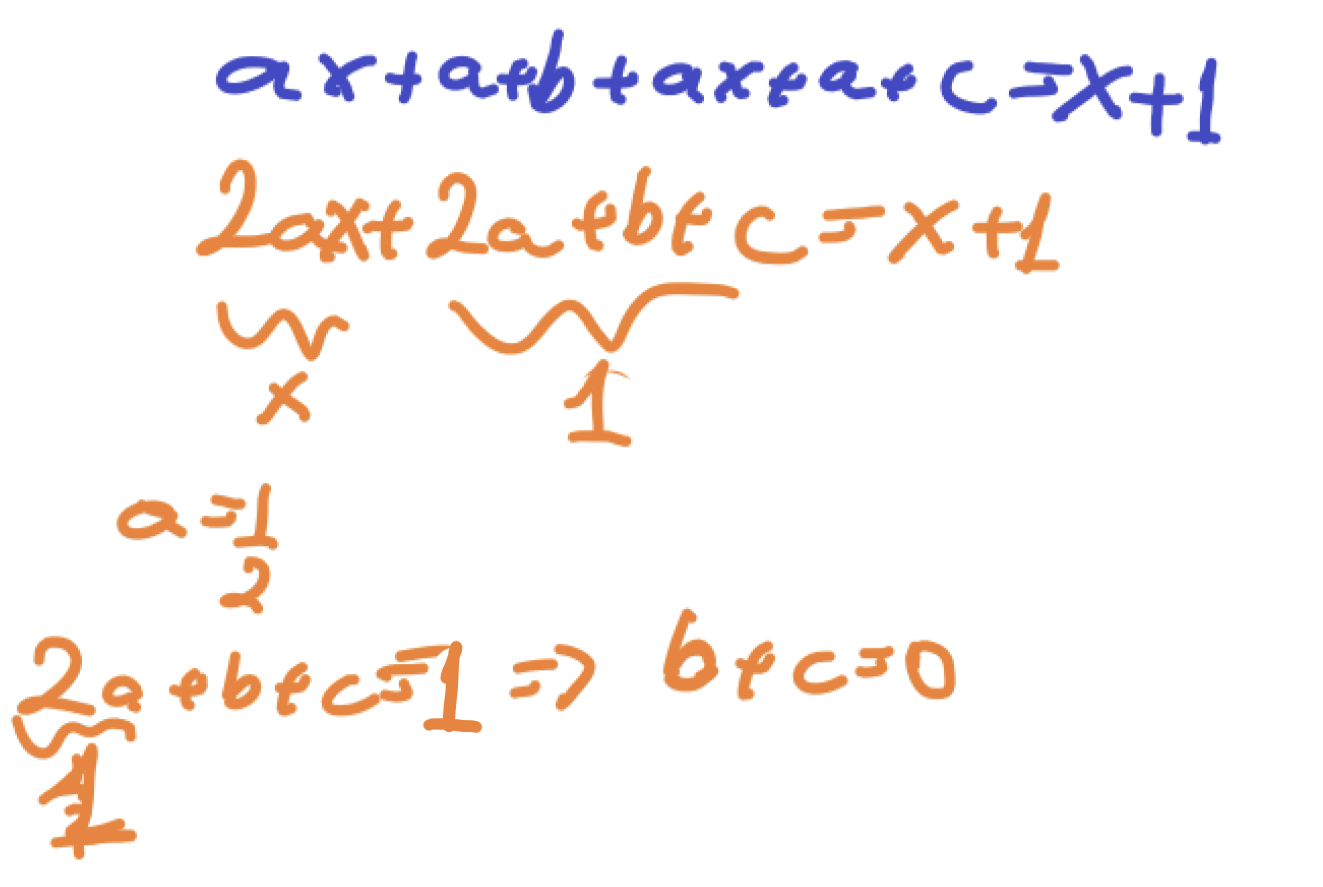 ax+a+b+ax+a+c=x+1
2ax+2a+b+c=x+1
x 1
a=1
2
2a+b+c=1 => b+c=0
1